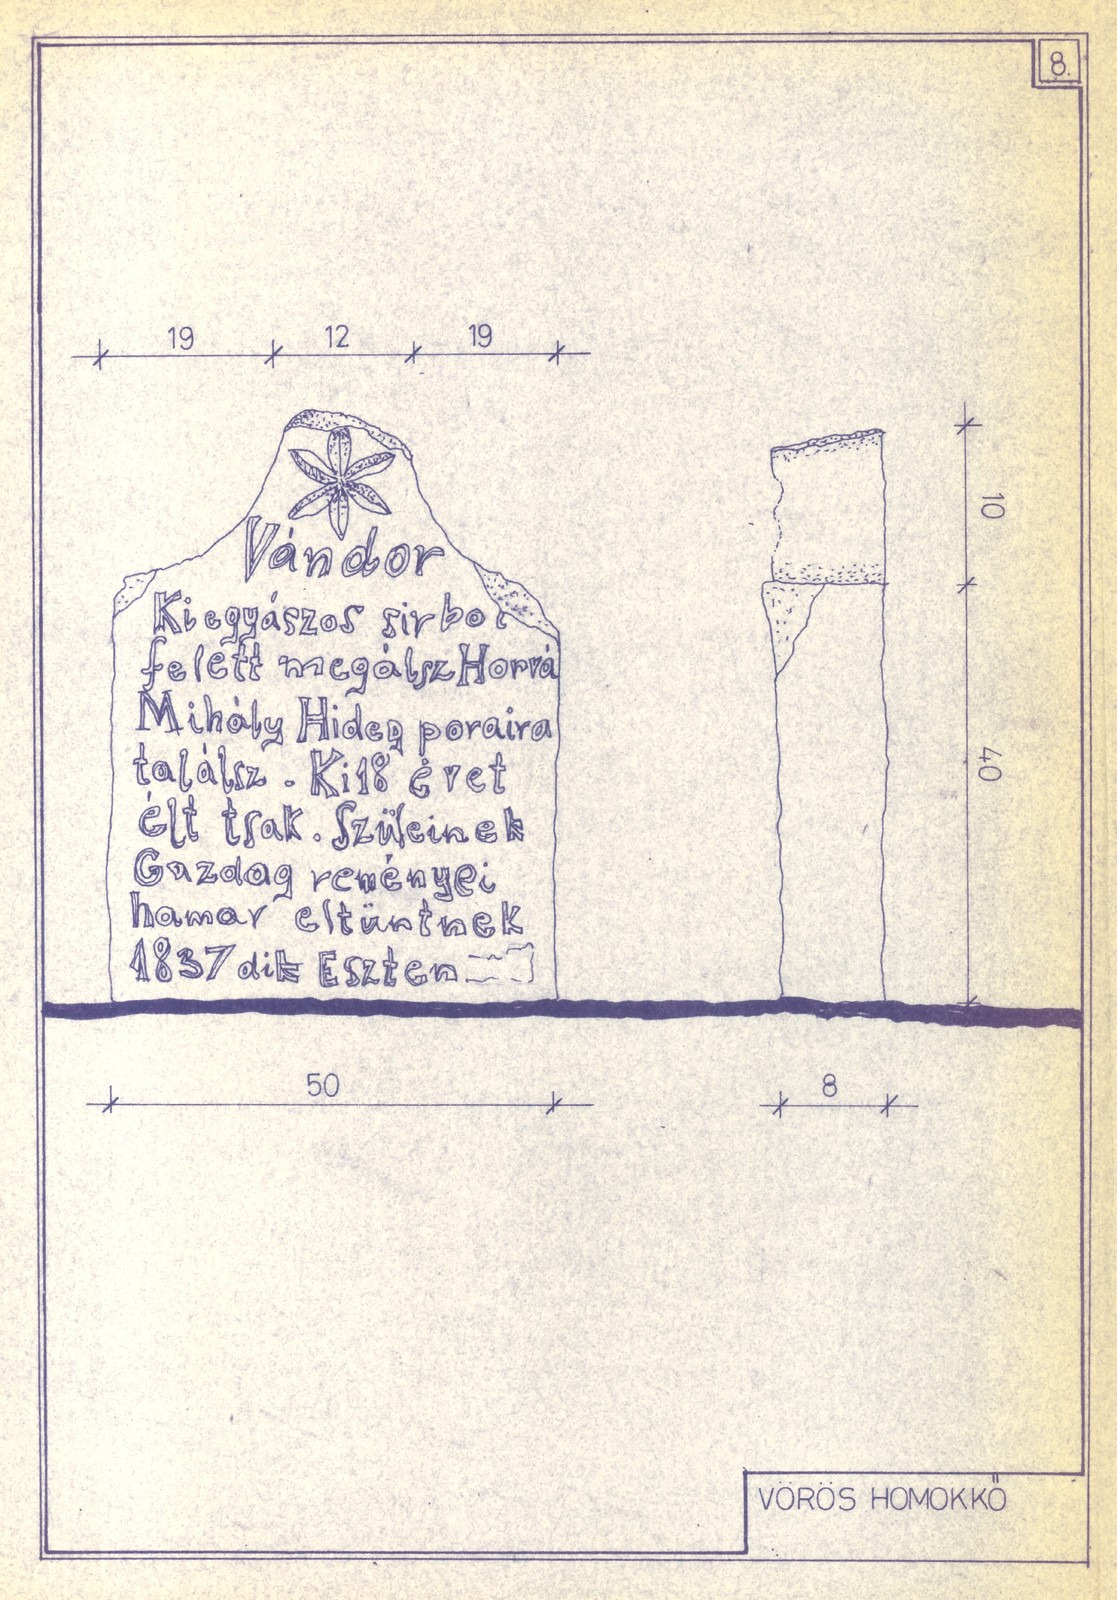 8.
19 12 19
Vándor
Ki egyászos sirbol
felett megálsz Horvá
Mihály Hideg poraira
találsz. Ki 18 évet
élt tsak. Szüleinek
Gazdag reményei
hamar eltüntnek
1837dik Eszten
10
40
50
8
VÖRÖS HOMOKKŐ